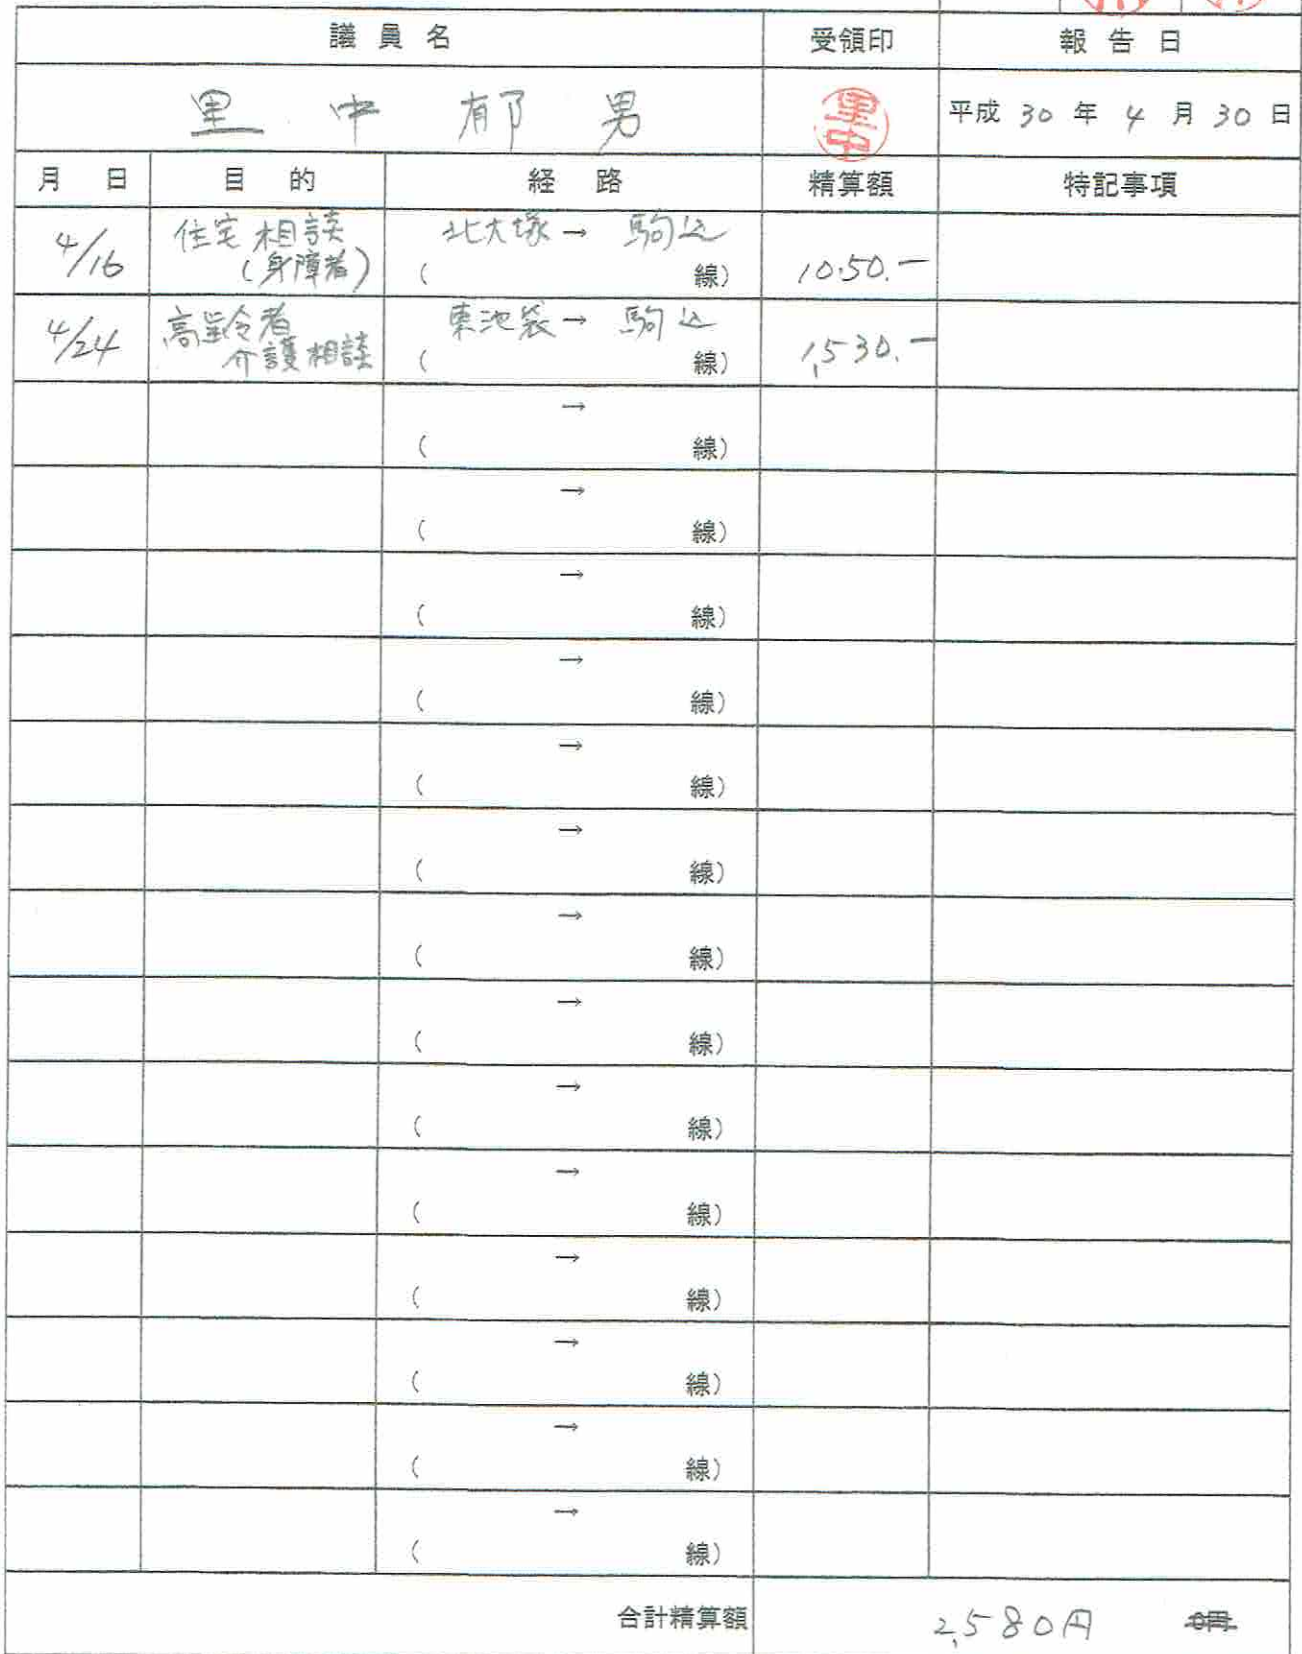 議員名 受領印 報告日
里中郁男 里中 平成30年4月30日
月日 目的 経路 精算額 特記事項
4/16 住宅相談 北大塚→駒込 1050.-
(身障者) ( 線)
4/24 高齢者 東池袋→駒込 1,530.-
介護相談 ( 線)
→
( 線)
→
( 線)
→
( 線)
→
( 線)
→
( 線)
→
( 線)
→
( 線)
→
( 線)
→
( 線)
→
( 線)
→
( 線)
→
( 線)
→
( 線)
→
( 線)
合計精算額 2,580円 0円